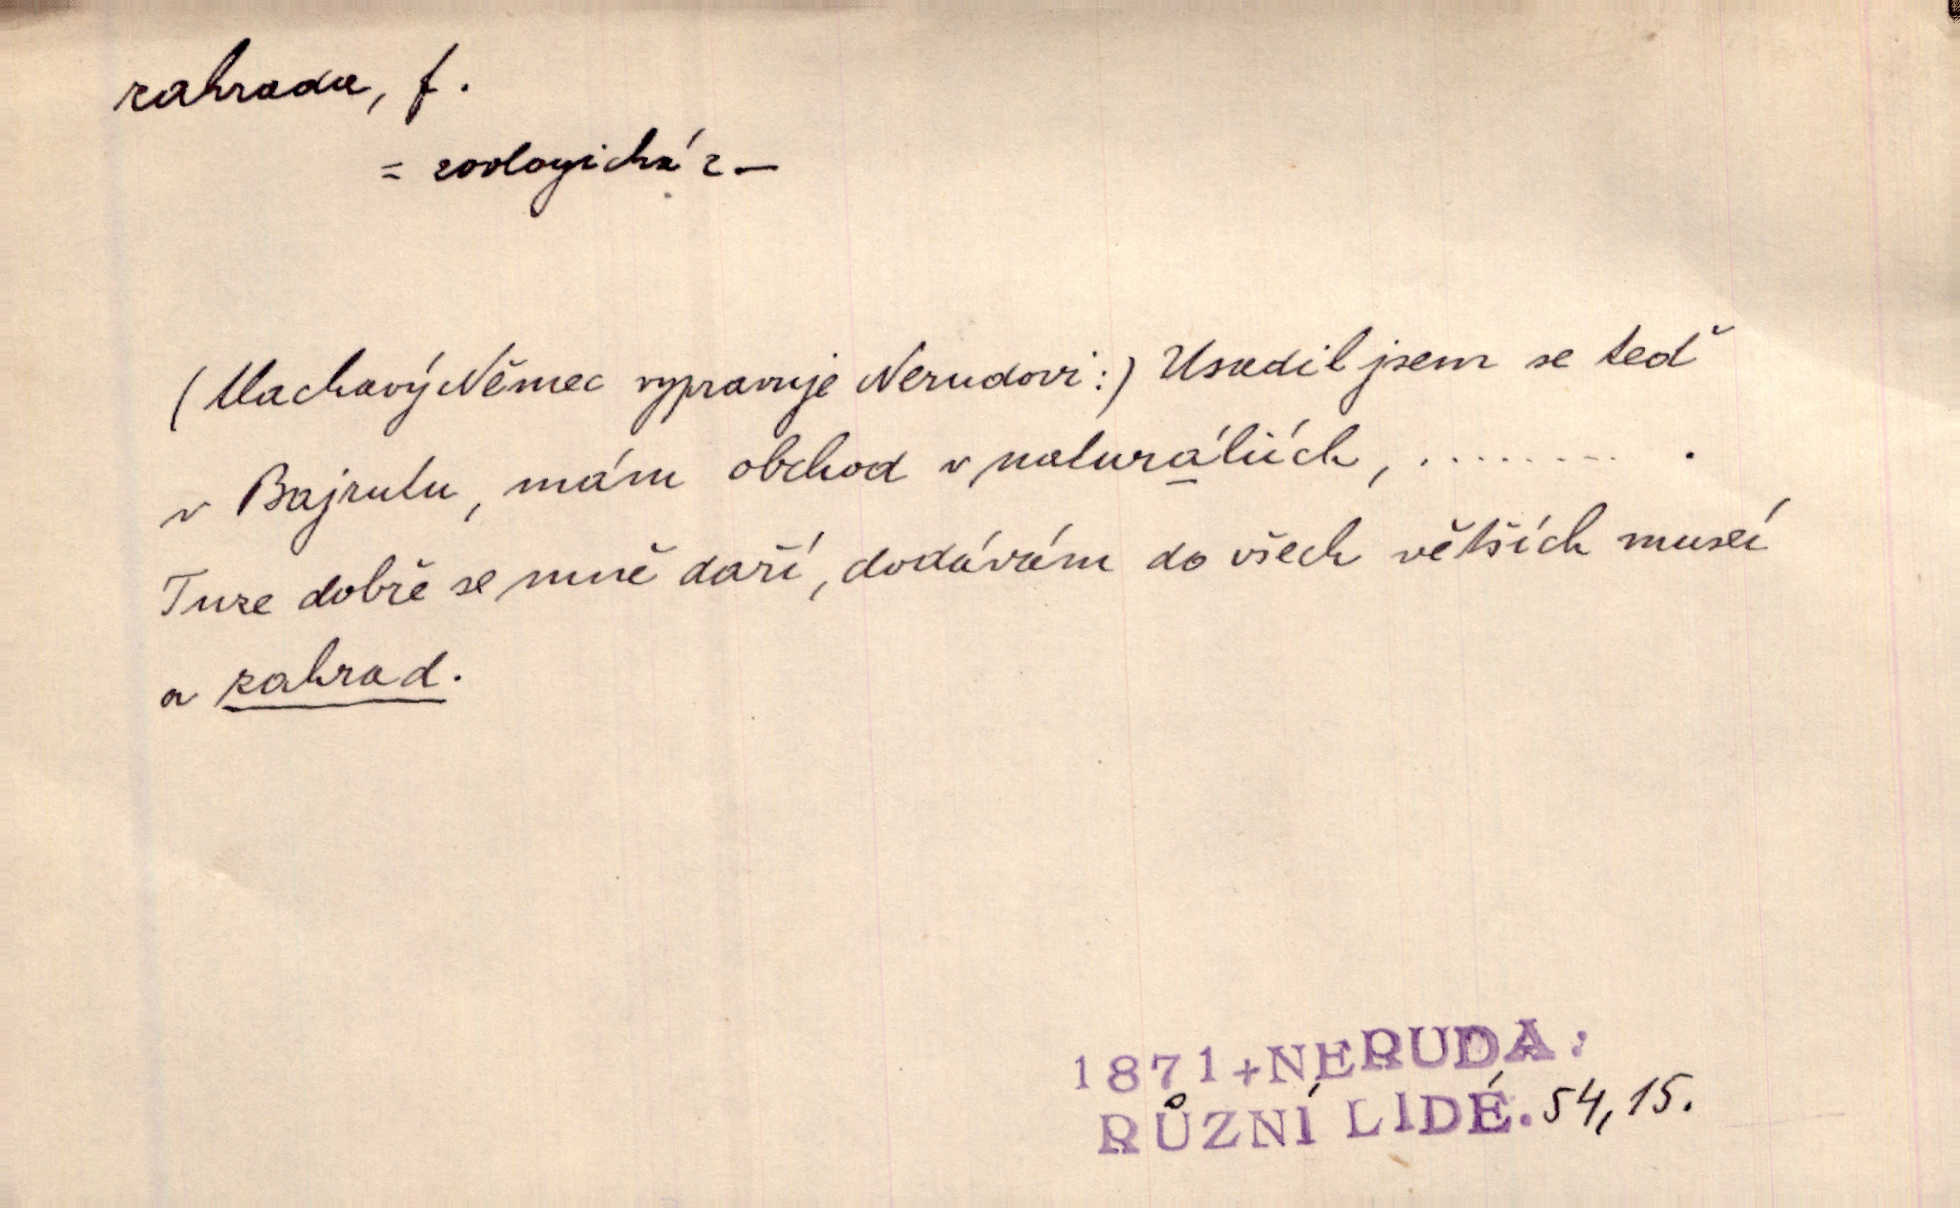 zahrada, f.
= zoologická z –
(tlachavý Němec vypravuje Nerudovi:) Usadil jsem se teď
v Bajrutu, mám obchod v naturáliích, ......... .
Tuze dobře se mně daří, dodávám do všech větších museí
a zahrad.
1871+NERUDA:
RŮZNÍ LIDÉ. 54, 15.